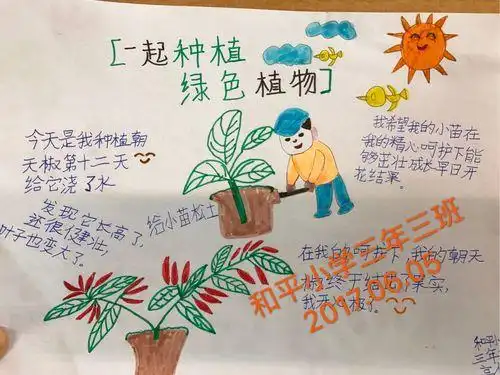 [一起种植
绿色植物]
今天是我种植朝
天椒第十二天
给它浇了水
发现它长高了,
还很健壮,
叶子也变大了。
给小苗松土
我希望我的小苗在
我的精心呵护下能
够茁壮成长早日开
花结果。
在我的呵护下,我的朝天
椒终于结出了果实,
我开心极了!
和平小学三年三班
和平小
三年